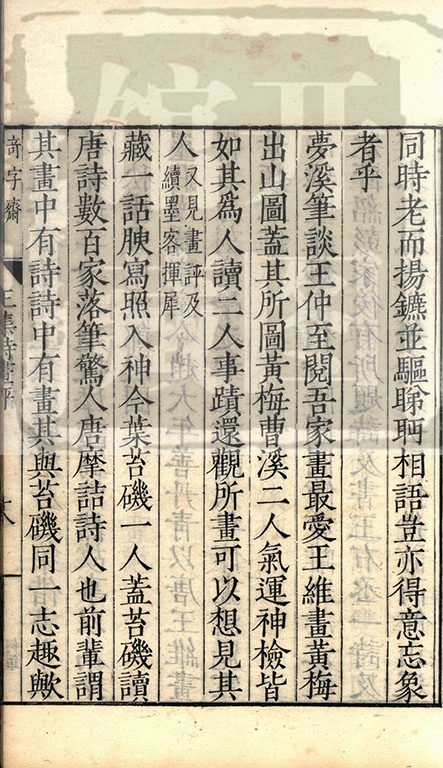 同時老而揚鑣並驅睇眄相語豈亦得意忘象
者乎
夢溪筆談王仲至閱吾家畫最愛王維畫黃梅
出山圖蓋其所圖黃梅曹溪二人氣運神檢皆
如其為人讀二人事蹟還觀所畫可以想見其
人又見畫評及
續墨客揮犀
藏一話腴寫照入神今葉苔磯一人蓋苔磯讀
唐詩數百家落筆驚人唐摩詰詩人也前輩謂
其畫中有詩詩中有畫其與苔磯同一志趣歟
奇字齋
詩畫評